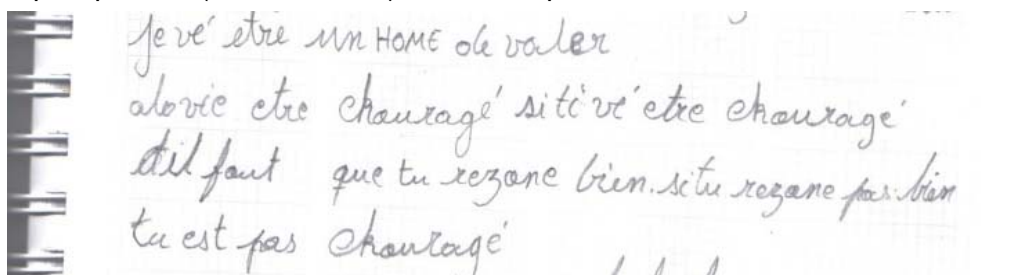 je vé etre un HOME de valer
alovie etre chauragé si ti vé etre chauragé
dil faut que tu rezone bien. si tu rezone pas bien
tu est pas chauragé